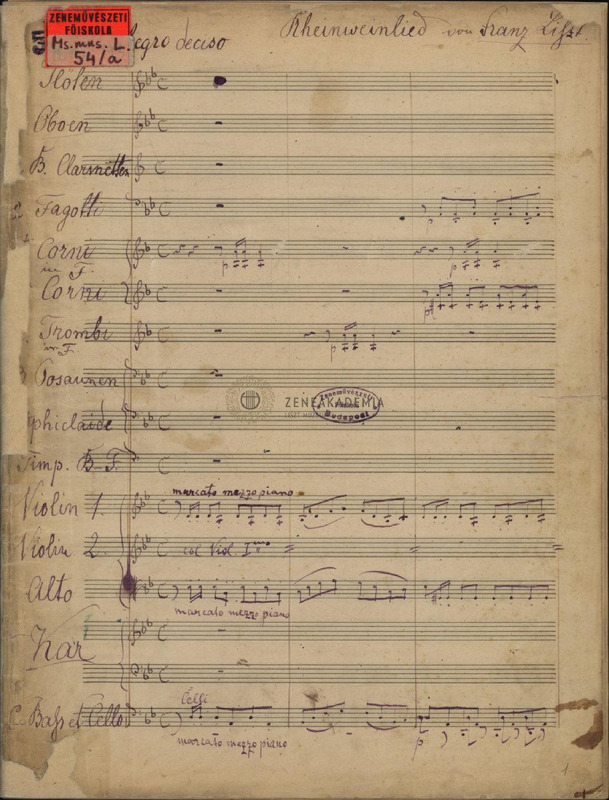 ZENEMŰVÉSZETI
FŐISKOLA
Ms. mus. L.
54/a
deciso
Rheinweinlied von Franz Liszt.
Flöten
Oboen
B. Clarinetten
2 Fagotti
Corni
in F.
Corni
Trombi
in F.
Posaunen
phiclaide
ZENEAKADÉMIA
Zeneművészeti
Budapest
Timp. B-F.
marcato mezzo piano
Violin 1.
Violin 2. col Viol. Imo
Alto
marcato mezzo piano
Kar
Celli
C. Bass et Cello
marcato mezzo piano
p
1